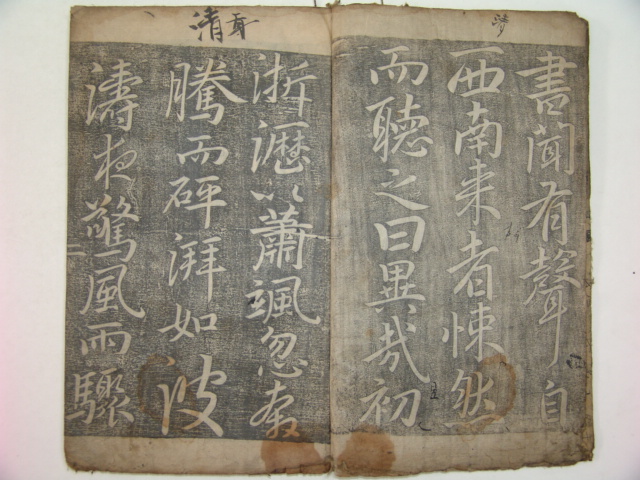 書聞有聲自
西南来者悚然
而聽之曰異哉初
淅瀝以蕭颯忽奔
騰而砰湃如波
濤夜驚風雨驟
清